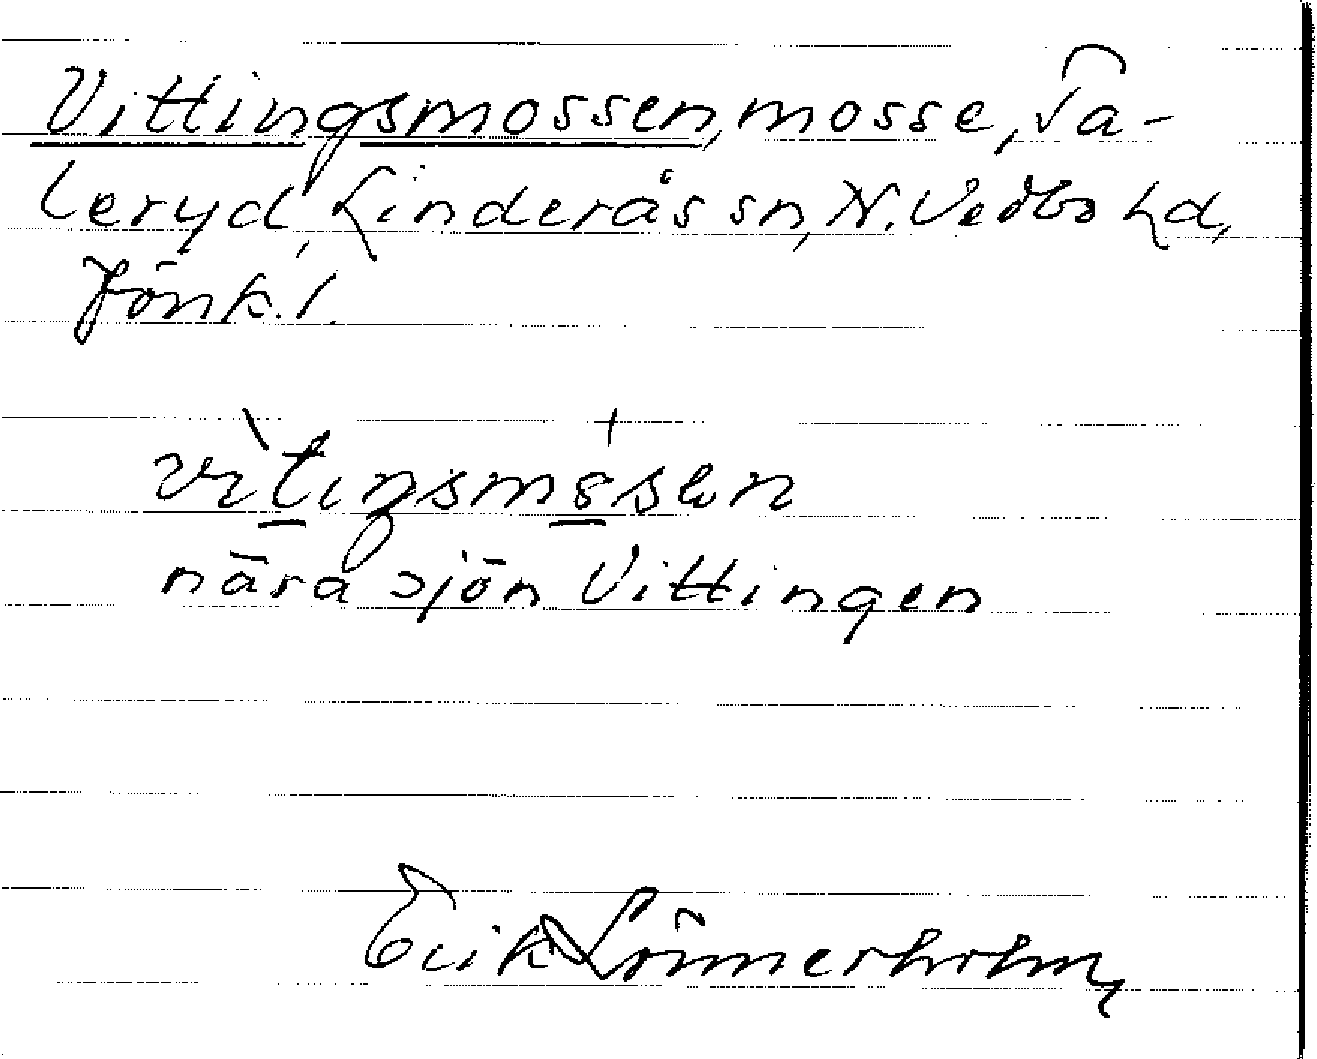 Vittingsmossen, mosse, Ta-
leryd, Linderås sn, N. Vedbo hd,
Jönk. l.
nära sjön Vittingen
Erik Lönnerholm